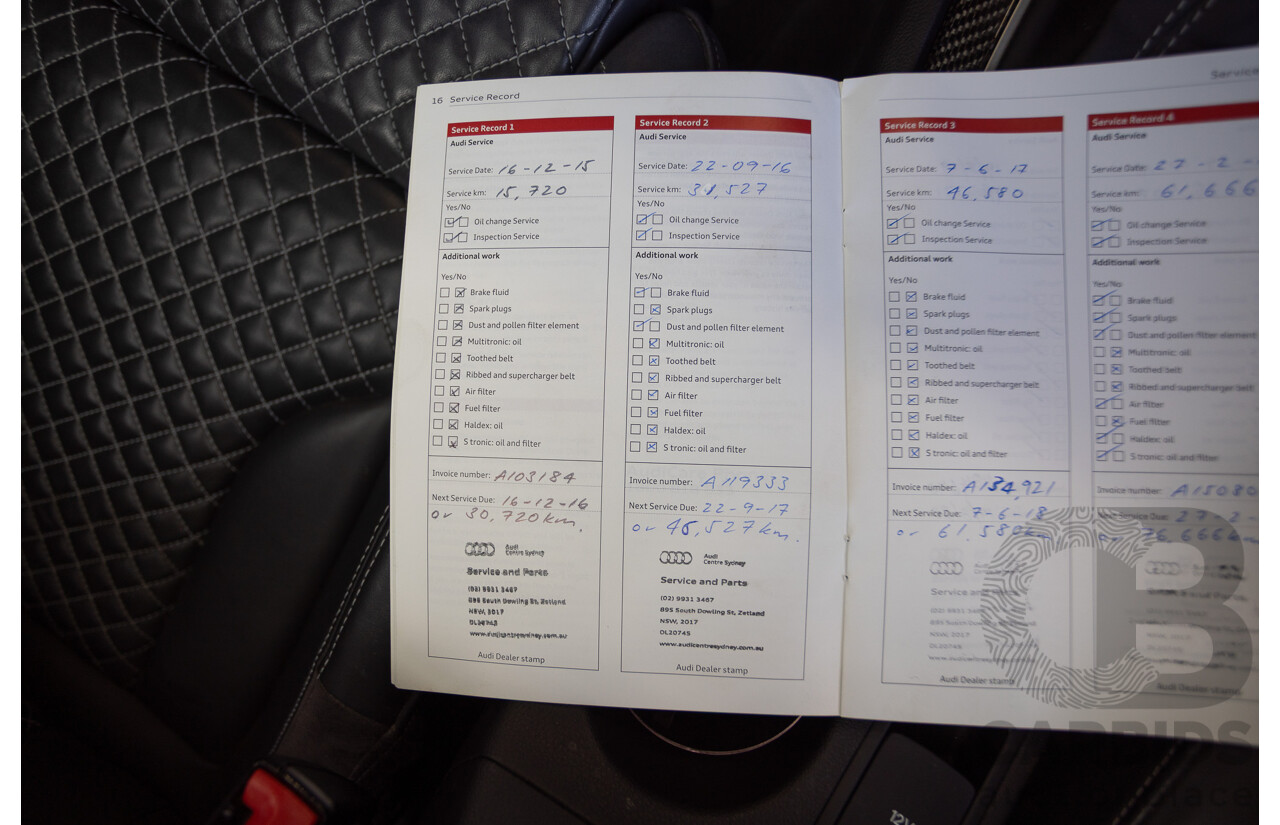 16 Service Record
Service Record 1
Audi Service
Service Date: 16-12-15
Service km: 15,720
Yes/No
Oil change Service
Inspection Service
Additional work
Yes/No
Brake fluid
Spark plugs
Dust and pollen filter element
Multitronic: oil
Toothed belt
Ribbed and supercharger belt
Air filter
Fuel filter
Haldex: oil
S tronic: oil and filter
Invoice number: A103184
Next Service Due: 16-12-16
or 30,720km.
Audi
Centre Sydney
Service and Parts
(02) 9931 3467
895 South Dowling St, Zetland
NSW, 2017
DL20745
www.audicentresydney.com.au
Audi Dealer stamp
Service Record 2
Audi Service
Service Date: 22-09-16
Service km: 31,527
Yes/No
Oil change Service
Inspection Service
Additional work
Yes/No
Brake fluid
Spark plugs
Dust and pollen filter element
Multitronic: oil
Toothed belt
Ribbed and supercharger belt
Air filter
Fuel filter
Haldex: oil
S tronic: oil and filter
Invoice number: A119333
Next Service Due: 22-9-17
or 46,527km.
Audi
Centre Sydney
Service and Parts
(02) 9931 3467
895 South Dowling St, Zetland
NSW, 2017
DL20745
www.audicentresydney.com.au
Audi Dealer stamp
Service
Service Record 3
Audi Service
Service Date: 7-6-17
Service km: 46,580
Yes/No
Oil change Service
Inspection Service
Additional work
Yes/No
Brake fluid
Spark plugs
Dust and pollen filter element
Multitronic: oil
Toothed belt
Ribbed and supercharger belt
Air filter
Fuel filter
Haldex: oil
S tronic: oil and filter
Invoice number: A134,921
Next Service Due: 7-6-18
or 61,580km
Audi Dealer stamp
Service Record 4
Audi Service
Service Date: 27-2-
Service km: 61,666
Yes/No
Oil change Service
Inspection Service
Additional work
Yes/No
Brake fluid
Spark plugs
Dust and pollen filter element
Multitronic: oil
Toothed belt
Ribbed and supercharger belt
Air filter
Fuel filter
Haldex: oil
S tronic: oil and filter
Invoice number: A15080
Next Service Due: 27-2-
or 76,666km
Audi Dealer stamp
CARBIDS
12V